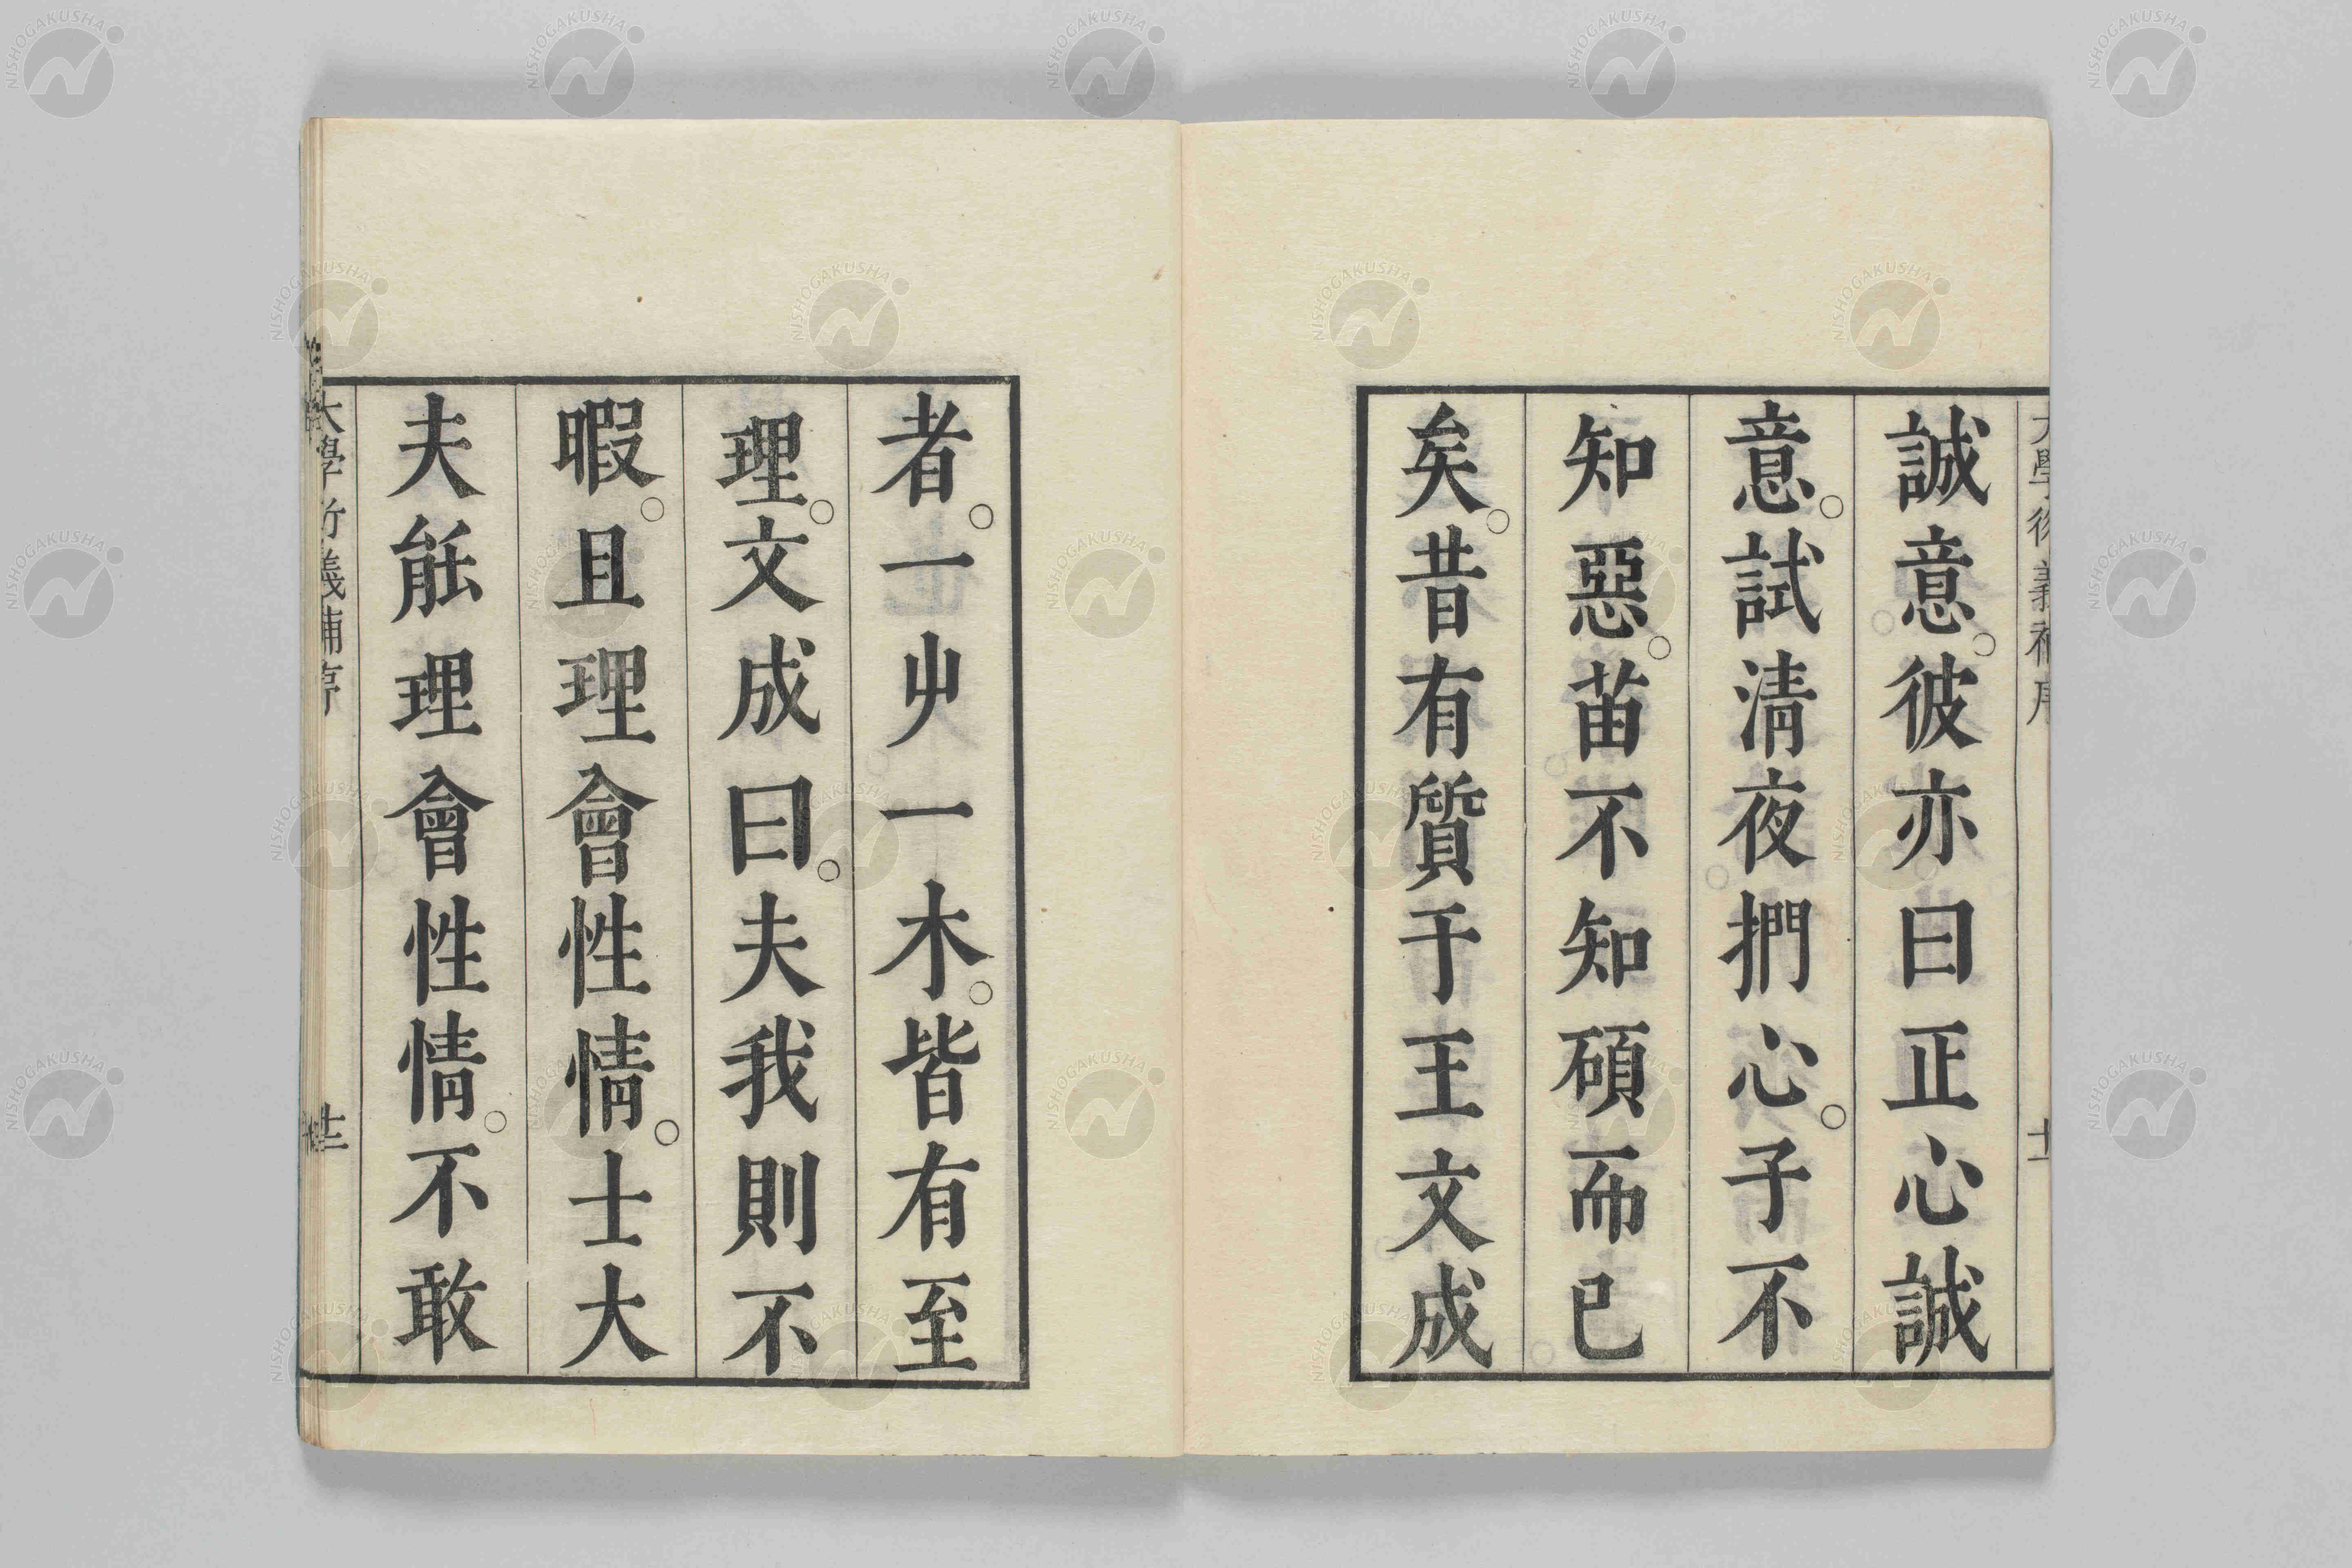 誠意。彼亦曰正心誠
意。試清夜捫心。子不
知惡。苗不知碩而已
矣。昔有質于王文成
者。一屮一木。皆有至
理。文成曰。夫我則不
暇。且理會性情。士大
夫能理會性情。不敢
NISHOGAKUSHA